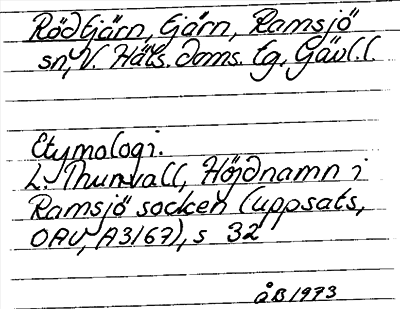 Rödtjärn, tjärn, Ramsjö
sn, V. Häls. doms. tg, Gävl.l.
Etymologi.
L. Thunvall, Höjdnamn i
Ramsjö socken (uppsats,
OAU, A3167), s 32
ÅB 1973